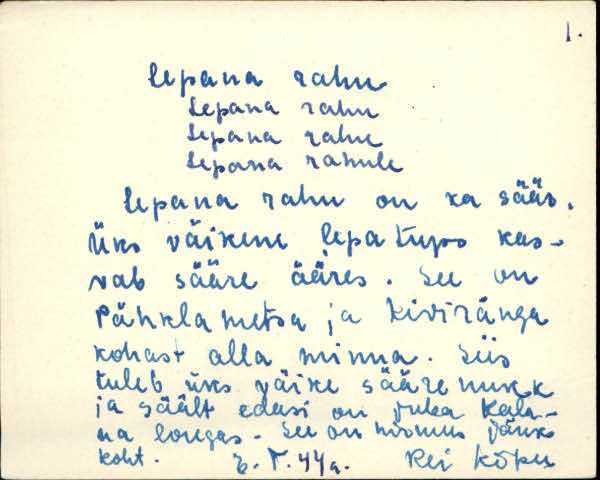 1.
lepana rahu
lepana rahu
lepana rahu
lepana rahule
lepana rahu on ka sääs.
üks väikene lepa tups kas-
vab sääre ääres. See on
Pähkla metsa ja Kiviränga
kohast alla minna. Siis
tuleb üks väike sääre nukk
ja säält edasi on juba Kala-
na lougas. See on
koht. E. T. 44a. Rei Kõpu